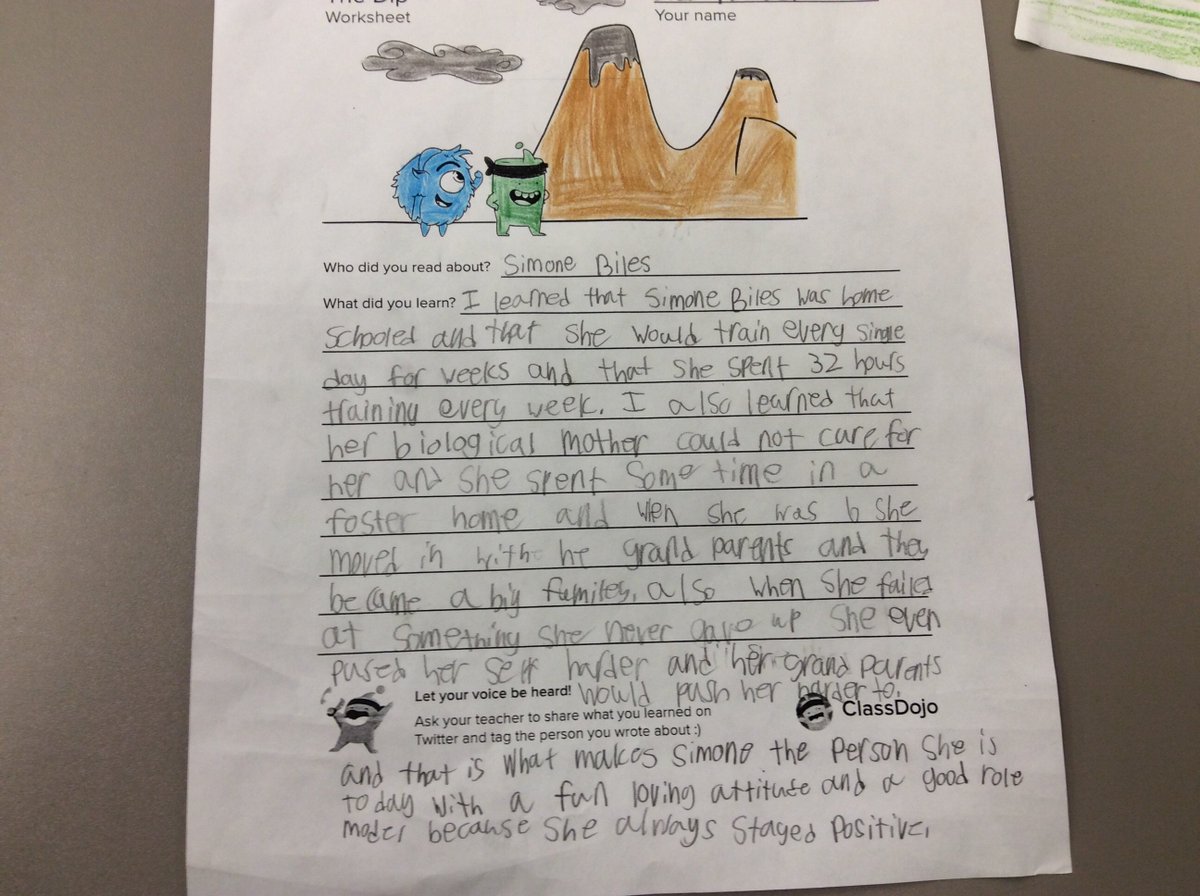 The Dip
Worksheet
Your name
Who did you read about? Simone Biles
What did you learn? I learned that Simone Biles was home
schooled and that she would train every single
day for weeks and that she spent 32 hours
training every week. I also learned that
her biological mother could not care for
her and she spent some time in a
foster home and when she was 6 she
moved in with he grand parents and they
became a big familey, also when she failed
at something she never gave up she even
pused her self harder and her grand parents
Let your voice be heard! would push her harder to.
Ask your teacher to share what you learned on
Twitter and tag the person you wrote about :)
ClassDojo
and that is what makes Simone the person she is
today with a fun loving attitude and a good role
model because she always stayed positive.